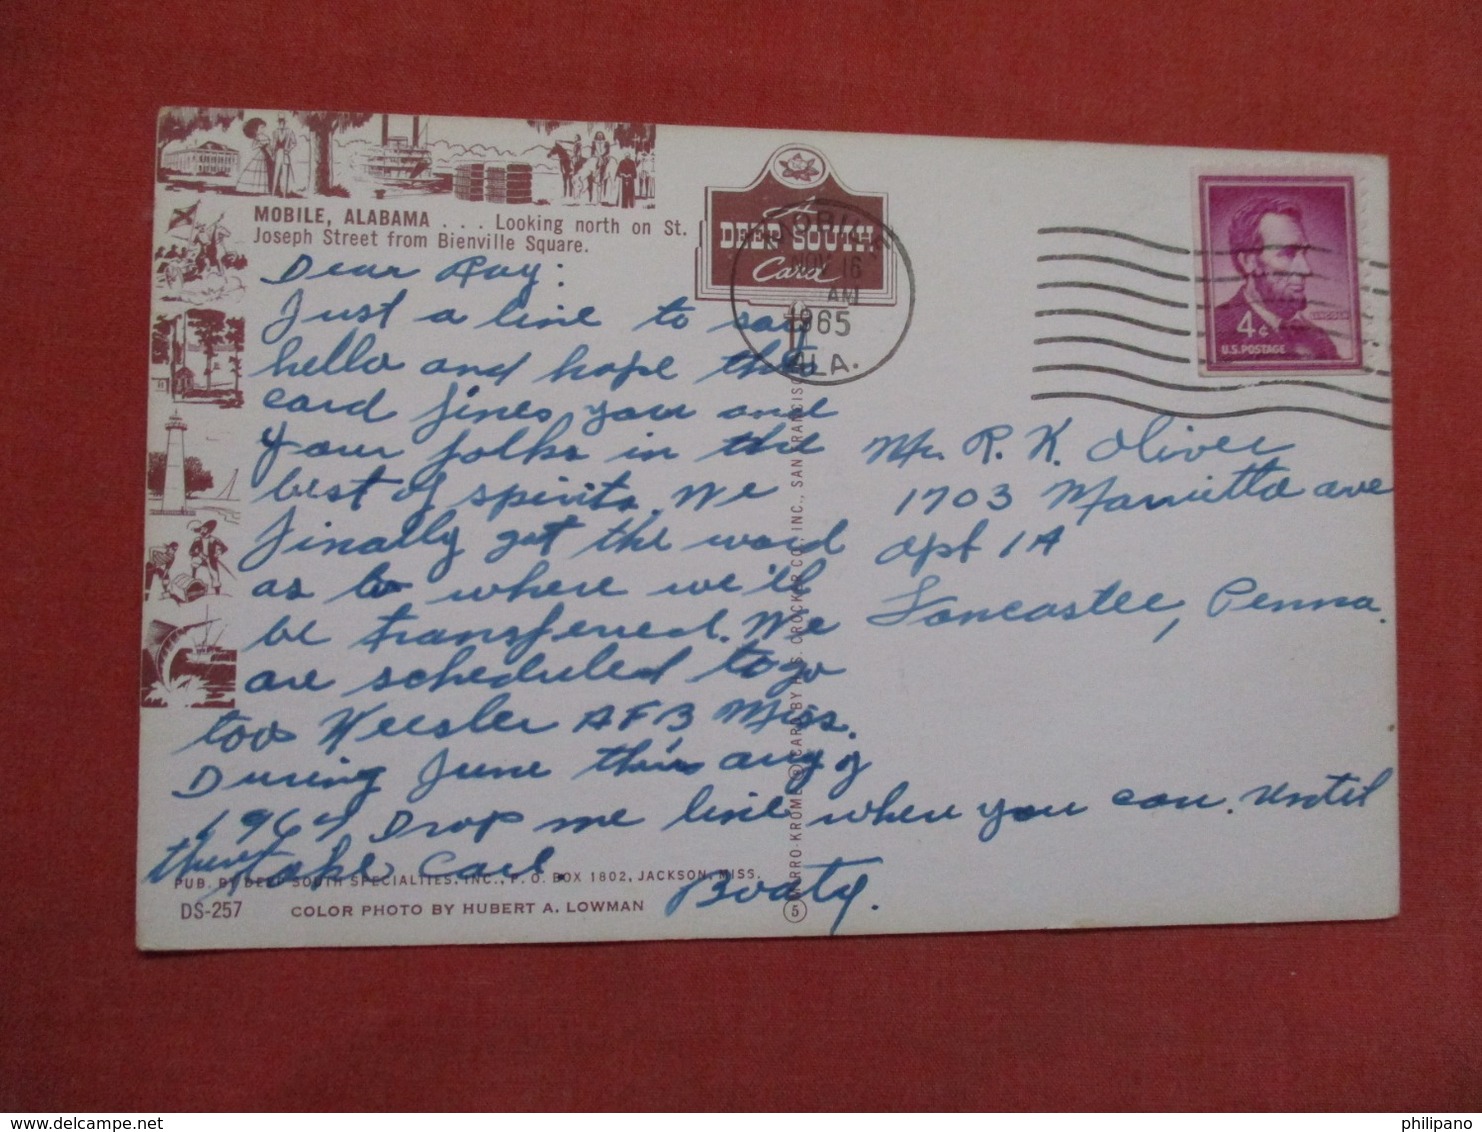 MOBILE, ALABAMA . . . Looking north on St.
Joseph Street from Bienville Square.
A
DEEP SOUTH
Card
MOBILE
NOV 16
AM
1965
ALA.
LINCOLN
4¢
U.S. POSTAGE
Dear Ray:
Just a line to say
hello and hope this
card fines you and
your folks in the
best of spirits. We
finally got the word
as to where we'll
be transferred. We
are scheduled to go
too Keesler AFB Miss.
During June thru aug of
1967 Drop me line when you can. Until
then take care.
Boaty.
Mr. R. K. Oliver
1703 Marrietta ave
apt 1A
Lancaster, Penna.
PUB. BY DEEP SOUTH SPECIALTIES, INC., P. O. BOX 1802, JACKSON, MISS.
DS-257 COLOR PHOTO BY HUBERT A. LOWMAN
MIRRO-KROME ® CARD BY H. S. CROCKER CO., INC., SAN FRANCISCO
5
philipano